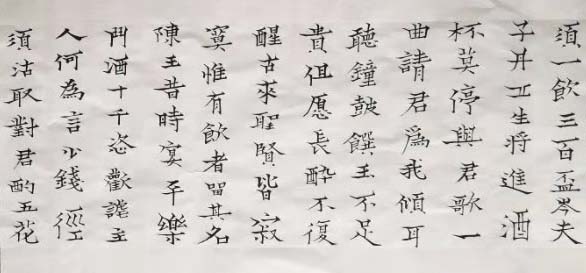 須一飲三百盃岑夫
子丹丘生將進酒
杯莫停與君歌一
曲請君爲我傾耳
聽鐘鼓饌玉不足
貴但愿長醉不復
醒古來聖賢皆寂
寞惟有飲者留其名
陳王昔時宴平樂
鬥酒十千恣歡謔主
人何為言少錢徑
須沽取對君酌五花